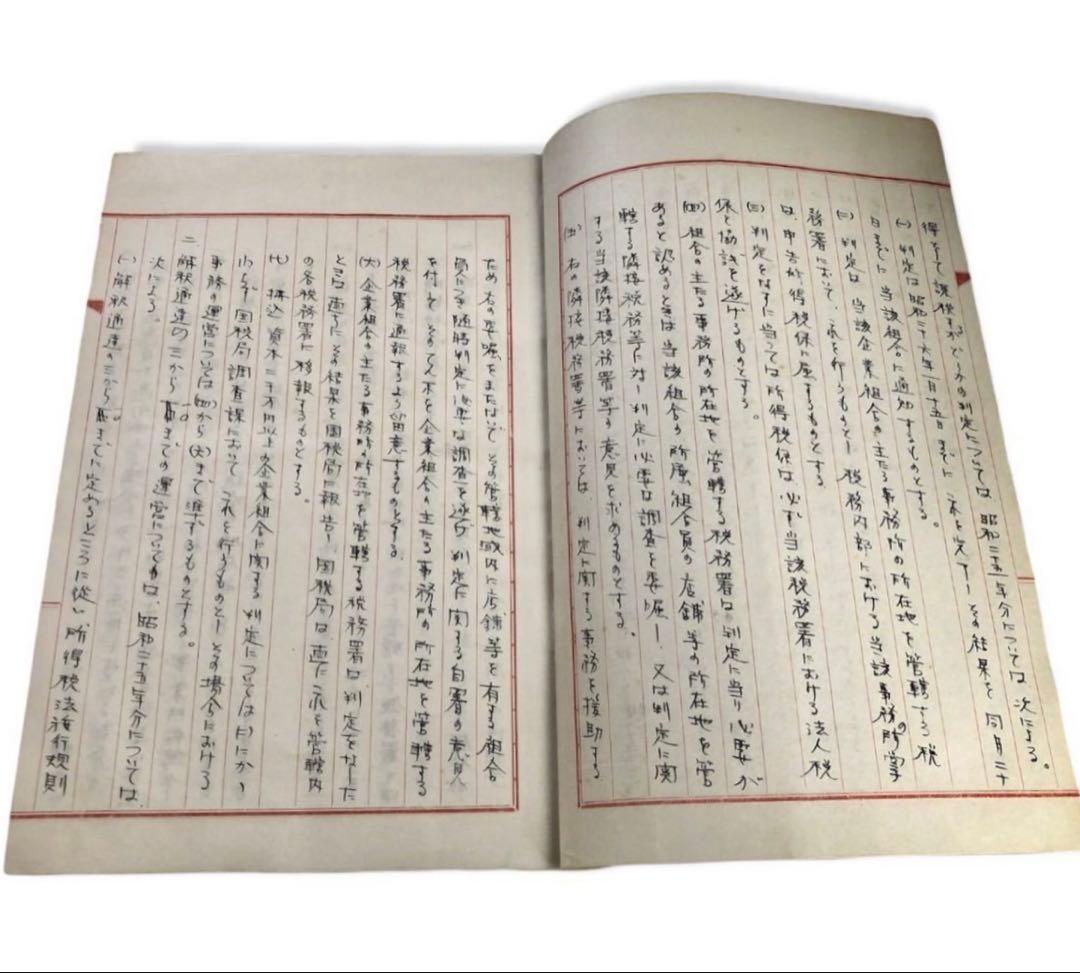 得として課税するかどうかの判定については、昭和二十五年分については次による。
(一) 判定は昭和二十六年一月十五日までにこれを完了し、その結果を同月二十
日までに当該組合に通知するものとする。
(二) 判定は、当該企業組合の主たる事務所の所在地を管轄する税
務署において、これを行うものとし、税務内部における当該事務の所掌
は、申告所得税係に属するものとする。
(三) 判定をなすに当っては所得税係は必ず当該税務署における法人税
係と協議を遂げるものとする。
(四) 組合の主たる事務所の所在地を管轄する税務署は、判定に当り必要が
あると認めるときは、当該組合の所属組合員の店舗等の所在地を管
轄する隣接税務署等に対し判定に必要な調査を委嘱し、又は判定に関
する当該隣接税務署等の意見を求めるものとする。
(五) 右の隣接税務署等においては、判定に関する事務を援助する
ため右の委嘱をまたないで、その管轄地域内に店舗等を有する組合
員につき随時判定に必要な調査を遂げ、判定に関する自署の意見
を付して、そのてん末を企業組合の主たる事務所の所在地を管轄する
税務署に通報するよう留意するものとする。
(六) 企業組合の主たる事務所の所在地を管轄する税務署は判定をなした
ときは直ちにその結果を国税局に報告し、国税局は直ちにこれを管轄内
の各税務署に移報するものとする。
(七) 払込資本二十万円以上の企業組合に関する判定については(二)にかゝ
わらず国税局調査課において、これを行うものとし、その場合における
事務の運営については(四)から(六)まで準ずるものとする。
二、解釈通達の三から一〇までの運営については、昭和二十五年分については、
次による。
(一) 解釈通達の三から一〇までに定めるところに従い、所得税法施行規則